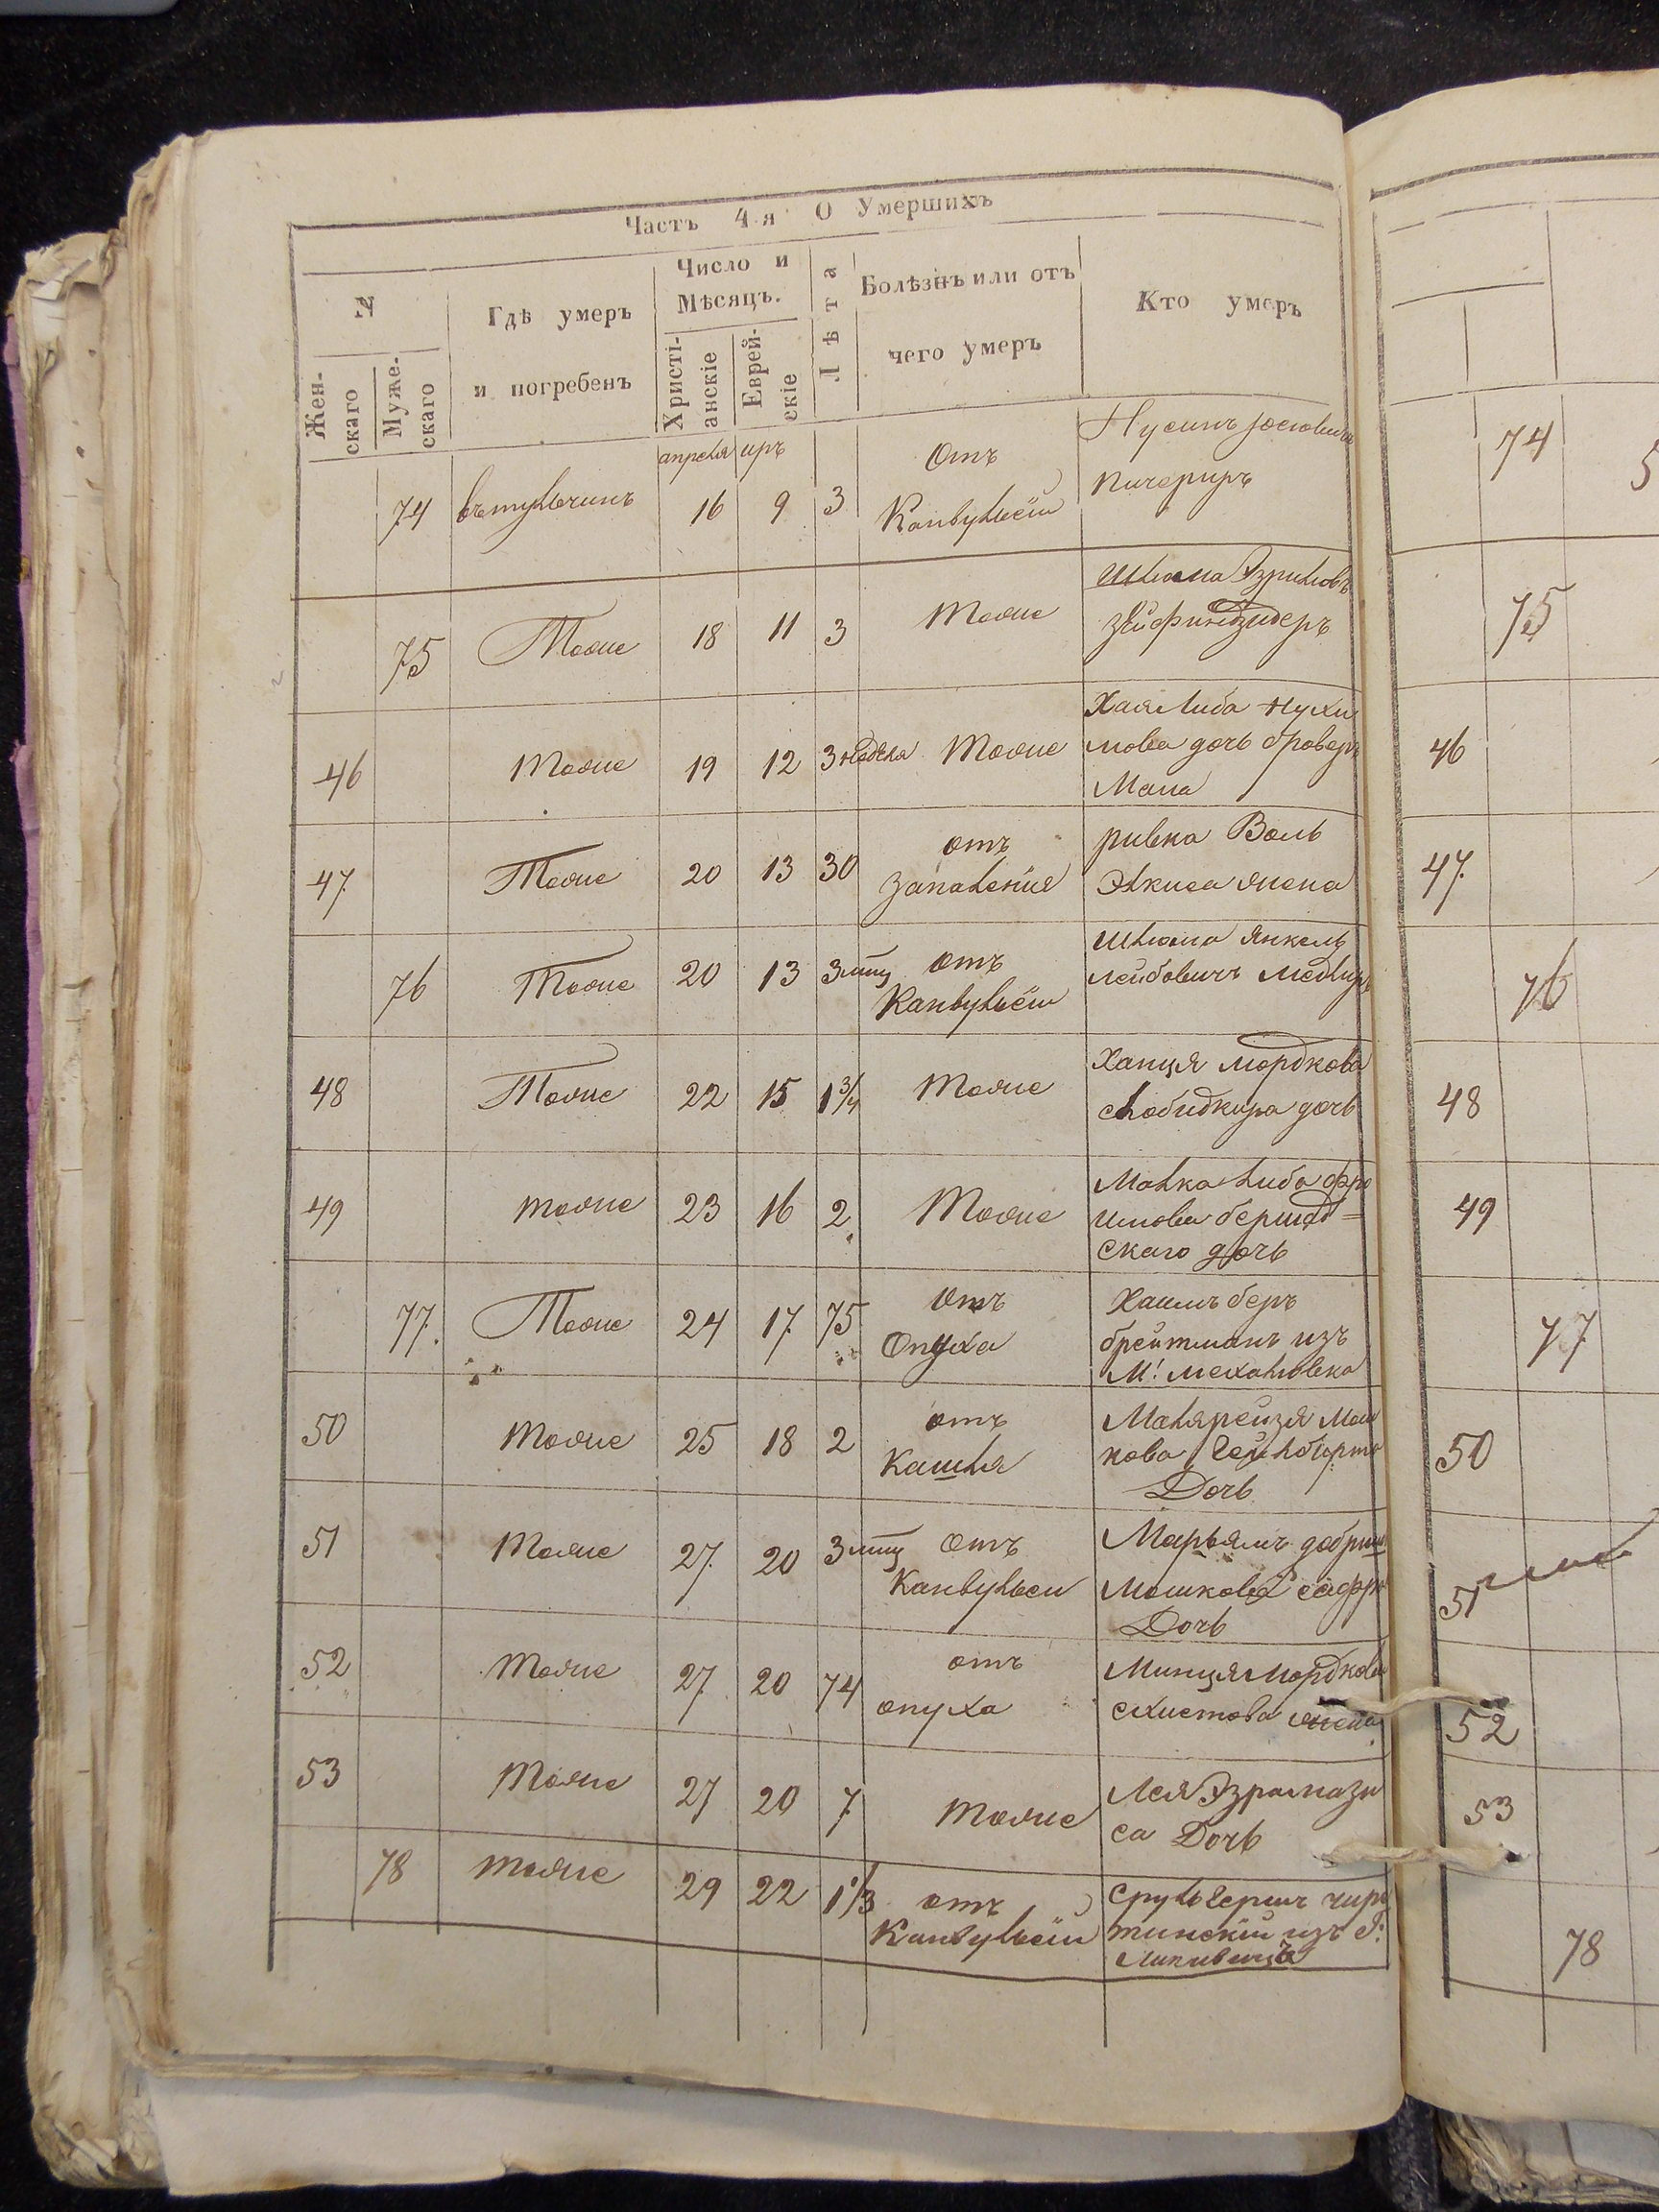 Часть 4-я О Умершихъ
N
Женскаго
Мужескаго
Гдѣ умеръ
и погребенъ
Число и
Мѣсяцъ.
Христіанскіе
Еврейскіе
Лѣта
Болѣзнь или отъ
чего умеръ
Кто умеръ
апреля иръ
74 въ тульчинъ 16 9 3
Отъ
Канвульсіи
Нусинъ Іосіовичъ
Пичериръ
75 Тоже 18 11 3 Тоже
Шлома Эзриловъ
46 Тоже 19 12 3 недѣля Тоже
Хая Либа Нухи
мова дочь бровер
Мана
47 Тоже 20 13 30
отъ
запаленія
ривка Воль
Элкиса жена
76 Тоже 20 13 3 мщ
отъ
Канвульсіи
Шлома Янкель
лейбовичъ
48 Тоже 22 15 1 3/4 Тоже
Ханця мордкова
слободкира дочь
49 Тоже 23 16 2 Тоже
Малка Либа фро
имова бершад=
скаго дочь
77. Тоже 24 17 75
Отъ
Опуха
Хаимъ беръ
брейтманъ изъ
М: механовка
50 Тоже 25 18 2
отъ
Кашля
Маляреизя Мош
кова
Дочь
51 Тоже 27 20 3 мщ
отъ
Канвульси
Марьямъ добриш
Мошкова
Дочь
52 Тоже 27 20 74
отъ
опуха
Минця Мордкова
жена
53 Тоже 27 20 7 Тоже
Лея
са Дочь
78 Тоже 29 22 1 1/3
отъ
Канвульсіи
Сруль Гершъ
тинскій изъ Г:
Липивица
74
75
46
47.
76
48
49
77
50
51
52
53
78